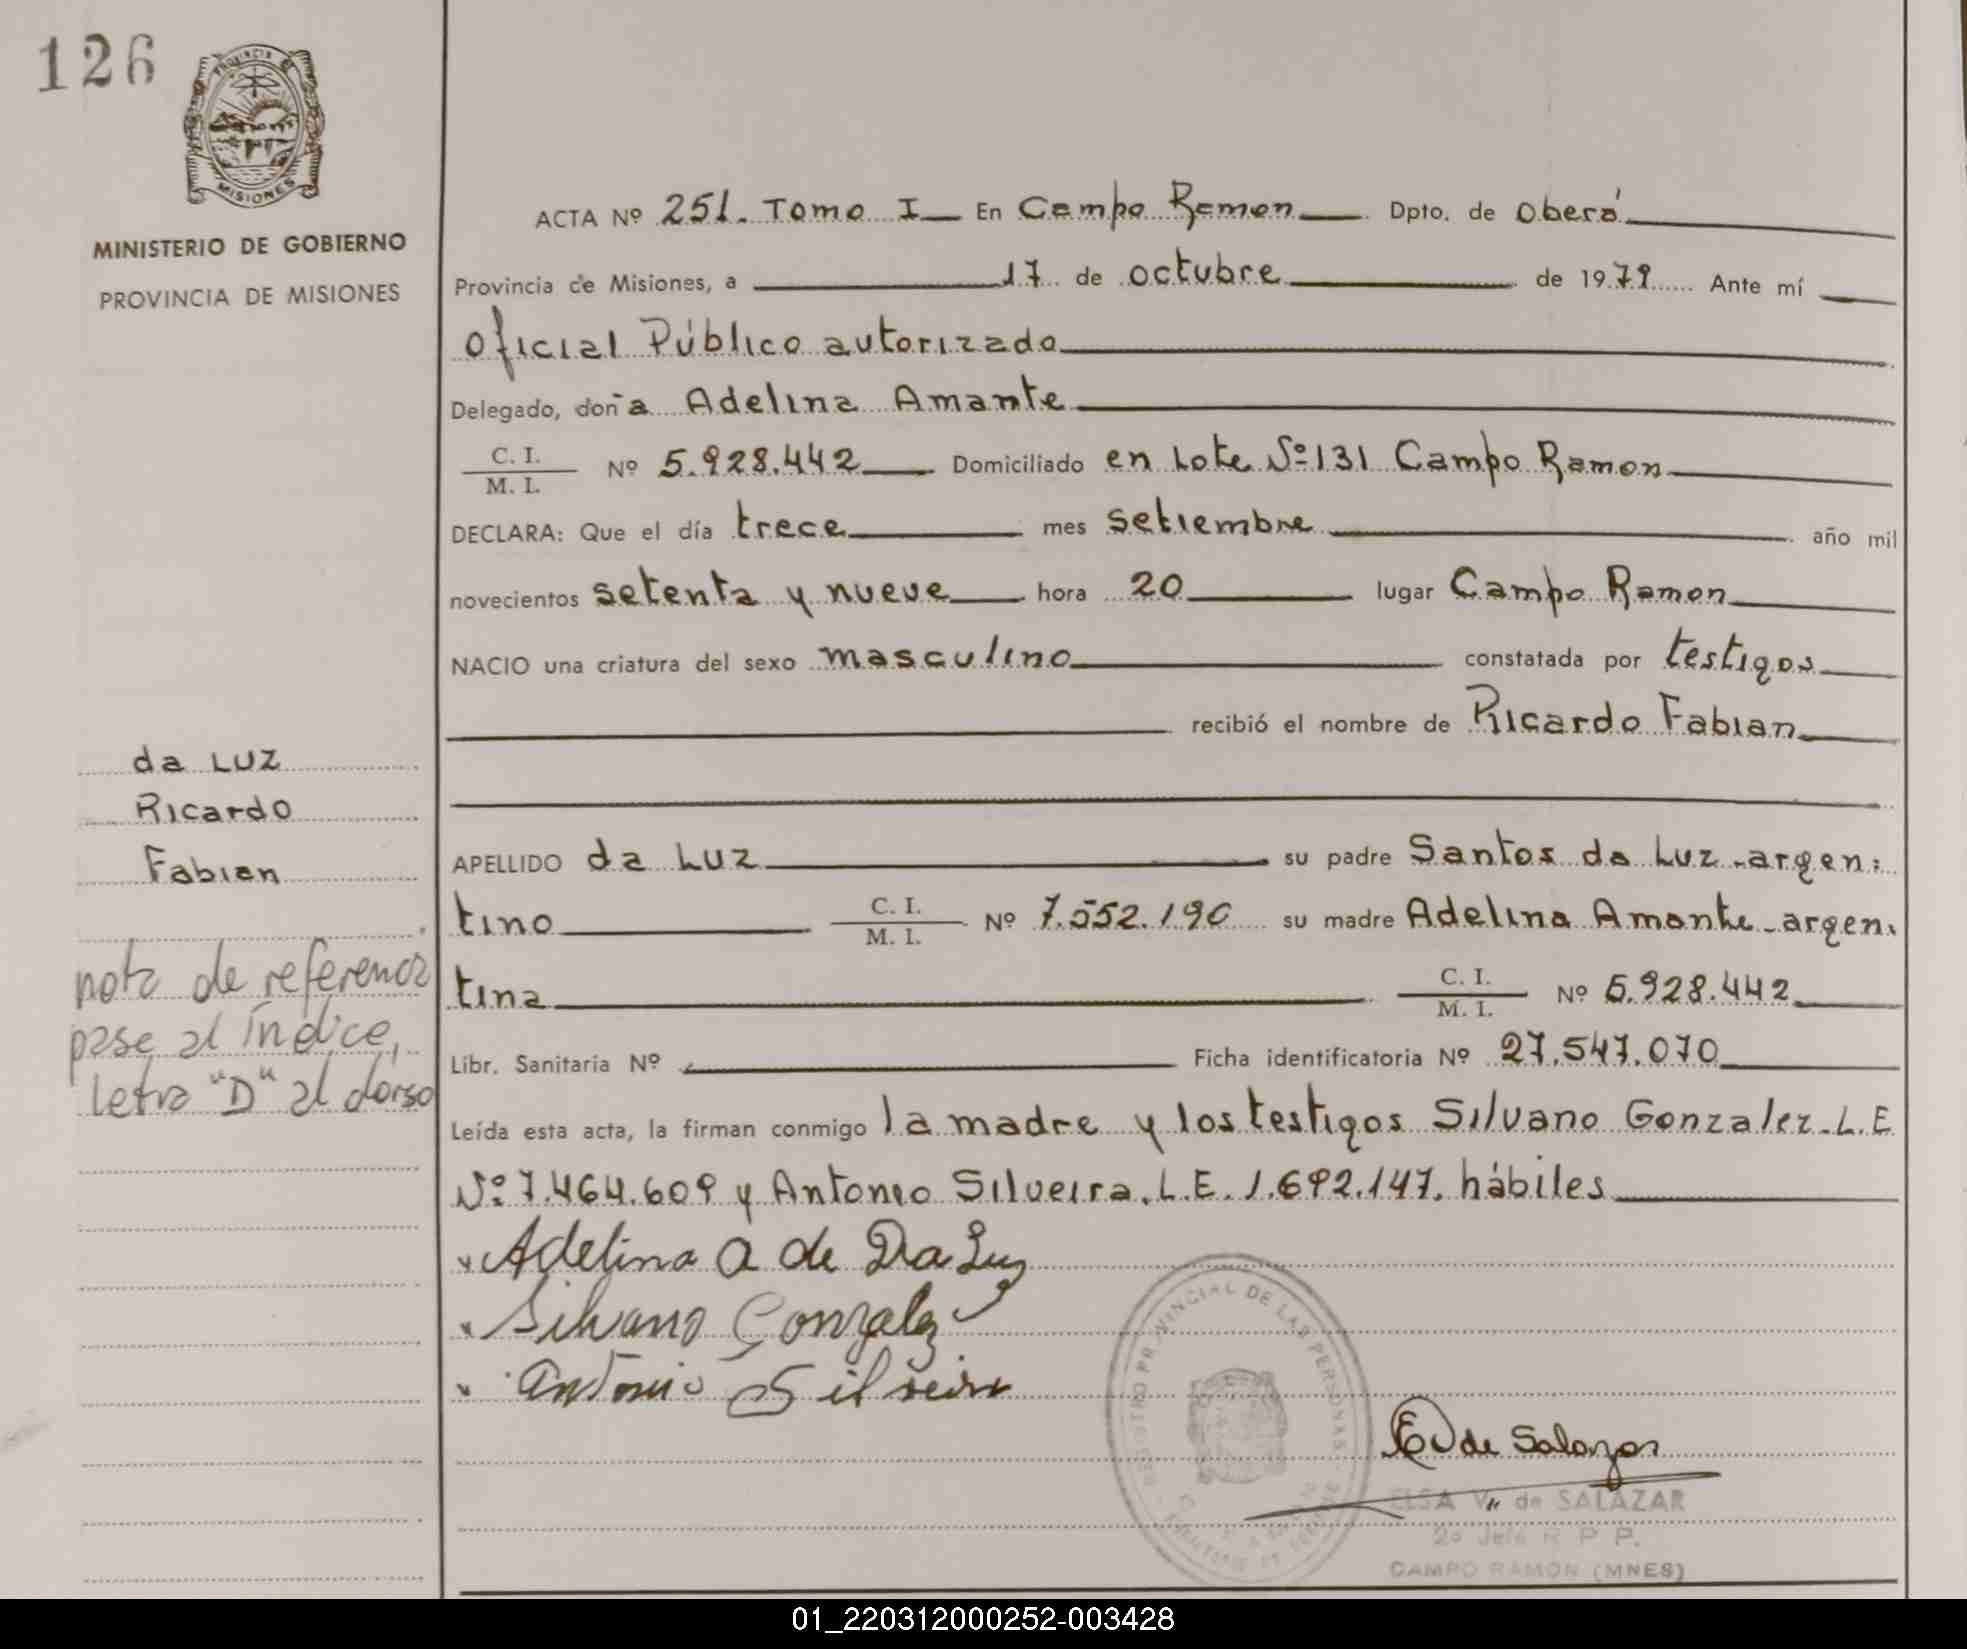 126
PROVINCIA DE
MISIONES
MINISTERIO DE GOBIERNO
PROVINCIA DE MISIONES
ACTA Nº 251. Tomo I En Campo Ramon Dpto. de Oberá
Provincia de Misiones, a 17 de octubre de 1979 Ante mí
Oficial Público autorizado
Delegado, doña Adelina Amante
C. I.
M. I. Nº 5.928.442 Domiciliado en Lote Nº 131 Campo Ramon
DECLARA: Que el día trece mes setiembre año mil
novecientos setenta y nueve hora 20 lugar Campo Ramon
NACIO una criatura del sexo masculino constatada por testigos
recibió el nombre de Ricardo Fabian
da Luz
Ricardo
Fabian
APELLIDO da Luz su padre Santos da Luz - argen-
tino C. I. M. I. Nº 7.552.190 su madre Adelina Amante - argen-
tina C. I. M. I. Nº 5.928.442
nota de referencia
pase al índice,
letra "D" al dorso
Libr. Sanitaria Nº Ficha identificatoria Nº 27.547.070
Leída esta acta, la firman conmigo la madre y los testigos Silvano Gonzalez - L.E
Nº 7.464.609 y Antonio Silveira. L.E. 1.692.147. hábiles
Adelina A de Da Luz
Silvano Gonzalez
Antonio Silveira
REGISTRO PROVINCIAL DE LAS PERSONAS
E V de Salazar
ELSA V. de SALAZAR
2º Jefe R P P.
CAMPO RAMON (MNES)
01_220312000252-003428